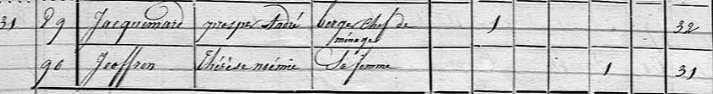 31 89 Jacquemard prosper André berger chef de ménage 1 32
90 Jeoffron thérèse noémie Sa femme 1 31